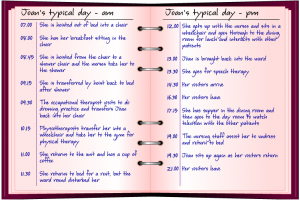 Joan's typical day - am
07.00 She is hoisted out of bed into a chair
08.00 She has her breakfast sitting in the
chair
08.45 She is hoisted from the chair to a
shower chair and the nurses take her to
the shower
09.15 She is transferred by hoist back to bed
after shower
09.30 The occupational therapist visits to do
dressing practice and transfers Joan
back into her chair
10.15 Physiotherapists transfer her into a
wheelchair and takes to the gym for
physical therapy
11.00 She returns to the unit and has a cup of
coffee
11.30 She returns to bed for a rest, but the
ward round disturbed her
Joan's typical day - pm
12.00 She gets up with the nurses and sits in a
wheelchair and goes through to the dining
room for lunch and interacts with other
patients
13.00 Joan is brought back into the ward
13.30 She goes for speech therapy
14.30 Her visitors arrive
16.30 Her visitors leave
17.15 She has supper in the dining room and
then goes to the day room to watch
television with the other patients
19.00 The nursing staff assist her to undress
and return to bed
19.30 Joan sits up again as her visitors return
21.00 Her visitors leave